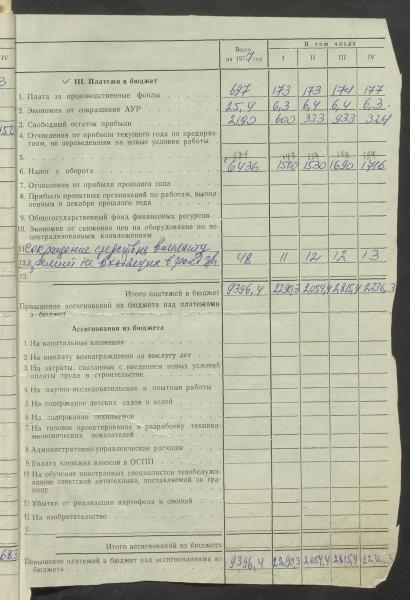 Всего на 1977 год
В том числе
IV
I II III IV
III. Платежи в бюджет
1. Плата за производственные фонды 697 173 173 174 177
2. Экономия от сокращения АУР 25,4 6,3 6,4 6,4 6,3
3. Свободный остаток прибыли 2190 600 333 933 324
4. Отчисления от прибыли текущего года по предприятиям, не переведенным на новые условия работы
5.
6. Налог с оборота 6436 1500 1530 1690 1716
7. Отчисления от прибыли прошлого года
8. Прибыль проектных организаций по работам, выполненным в декабре прошлого года
9. Общегосударственный фонд финансовых ресурсов
10. Экономия от снижения цен на оборудование по нецентрализованным капвложениям
11. Сокращение средств на выплату
12. премий не входящих в фонд 48 11 12 12 13
13
Итого платежей в бюджет 9396,4 2290,3 2054,4 2815,4 2236,3
Превышение ассигнований из бюджета над платежами в бюджет
Ассигнования из бюджета
1. На капитальные вложения
2. На выплату вознаграждения за выслугу лет
3. На затраты, связанные с введением новых условий оплаты труда в строительстве
4. На научно-исследовательские и опытные работы
5. На содержание детских садов и яслей
6. На содержание техникумов
7. На типовое проектирование и разработку технико-экономических показателей
8. Административно-управленческие расходы
9. Уплата членских взносов в ОСПП
10 На обучение иностранных специалистов техобслуживанию советской автотехники, поставляемой за границу
11. Убытки от реализации картофеля и овощей
12. На изобретательство
13
Итого ассигнований из бюджета
683
Превышение платежей в бюджет над ассигнованиями из бюджета 9396,4 2290,3 2054,4 2815,4 2236,3